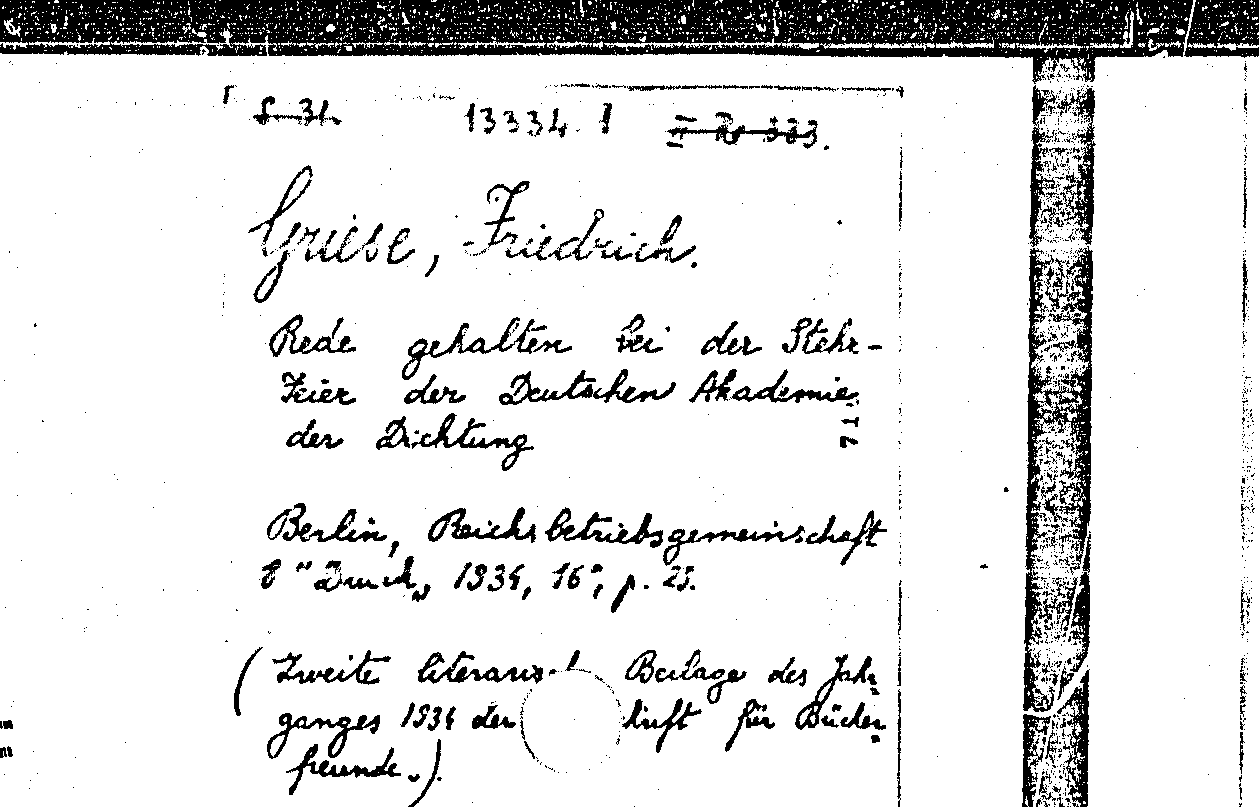 S 31.   13334   II Rr 333.
Griese, Friedrich.
Rede gehalten bei der Stehr-
Feier der Deutschen Akademie
der Dichtung
Berlin, Reichsbetriebsgemeinschaft
8 "Druck„ 1934, 16°, p. 23.
(Zweite literaris Beilage des Jahr-
ganges 1934 der hrift für Bücher-
freunde.).